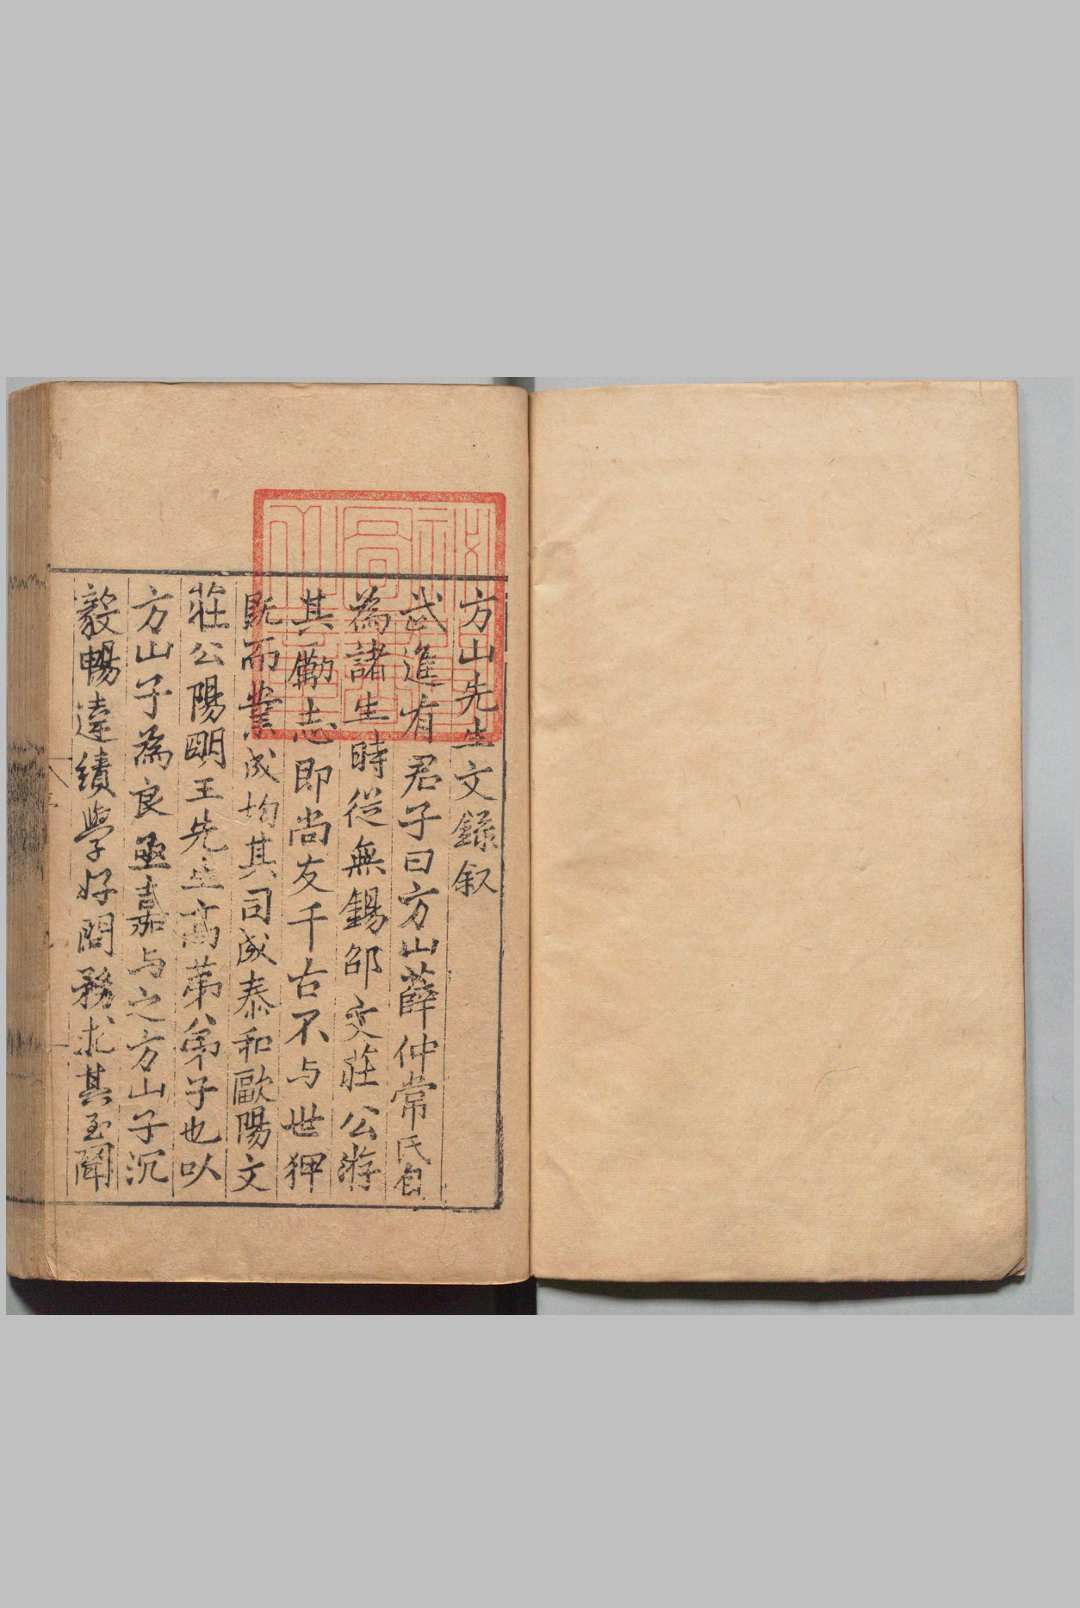 方山先生文錄叙
武進有君子曰方山薛仲常氏自
為諸生時從無錫邵文莊公游
其勵志即尚友千古不与世狎
既而業成均其司成泰和歐陽文
莊公陽明王先生高第弟子也以
方山子為良亟嘉与之方山子沉
毅暢遠績學好問務求其至聞